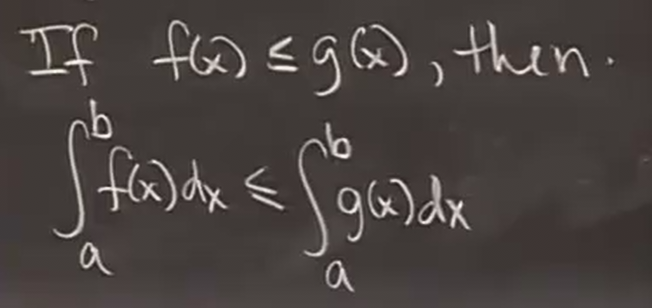 If f(x) ≤ g(x), then.
∫_a^b f(x)dx ≤ ∫_a^b g(x)dx